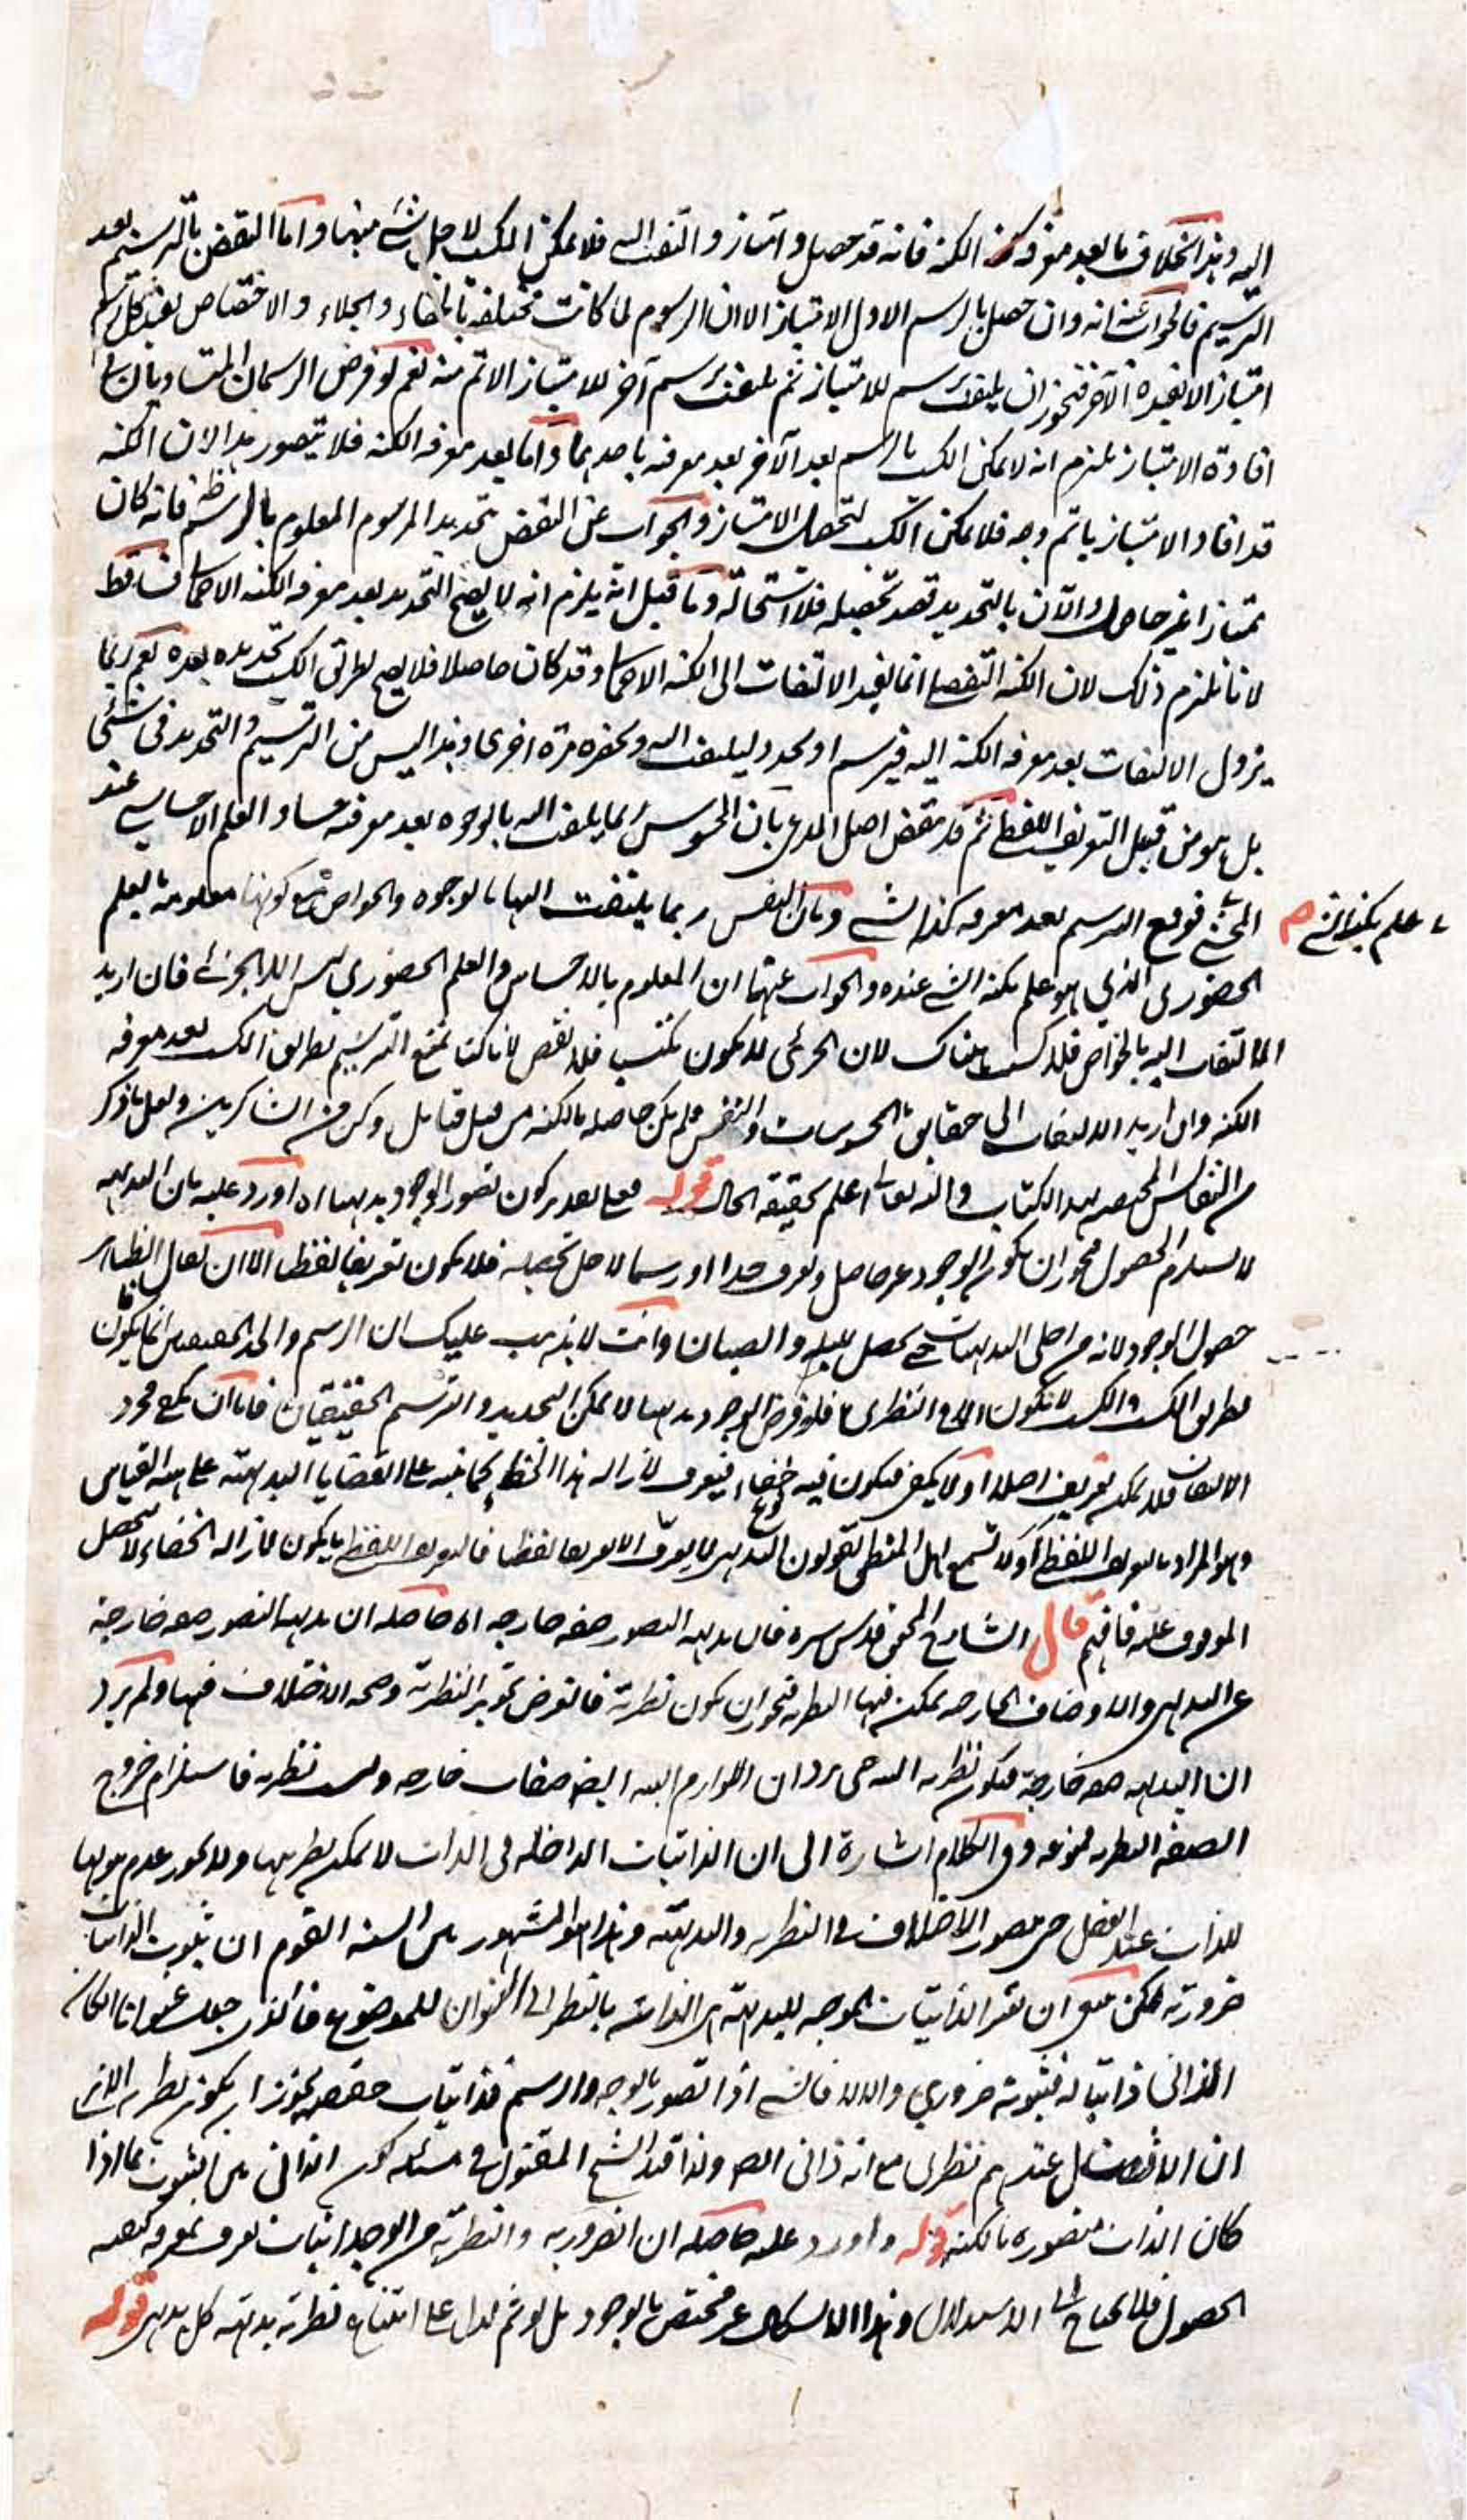 اليه وهذا بخلاف ما بعد معرفة كنه الكنه فانه قد حصل وامتاز والتفت اليه فلا يمكن الكسب لاجل شئ منهما واما النقض بالترسيم بعد
الترسيم فالجواب عنه انه وان حصل بالرسم الاول الامتياز الا ان الرسوم لما كانت مختلفة بالخفاء والجلاء والاختصاص يفيد كل رسم
امتيازا لا يفيده الآخر فيجوز ان يلتفت برسم للامتياز ثم يلتفت برسم آخر للامتياز الاتم منه نعم لو فرض الرسمان المتساويان في
افادة الامتياز نلتزم انه لا يمكن الكسب بالرسم بعد الآخر بعد معرفته باحدهما واما بعد معرفة الكنه فلا يتصور هذا لان الكنه
قد افاد الامتياز باتم وجه فلا يمكن الكسب لتحصيل الامتياز والجواب عن النقض بتحديد المرسوم المعلوم بالرسم ظ فانه كان
ممتازا غير حاصل والآن بالتحديد قصد تحصيله فلا استحالة وما قيل انه يلزم ان لا يصح التحديد بعد معرفة الكنه الاجمالي فساقط
لانا نلتزم ذلك لان الكنه التفصيلي انما يفيد الالتفات الى الكنه الاجمالي وقد كان حاصلا فلا يصح بطريق الكسب تحديده بعده نعم ربما
يزول الالتفات بعد معرفة الكنه اليه فيرسم او يحدد ليلتفت اليه ويحضره مرة اخرى وهذا ليس من الترسيم والتحديد في شئ
بل هو من قبيل التعريف اللفظي ثم قد ينقض اصل المدعى بان المحسوس ربما يلتفت اليه بالوجوه بعد معرفته حسا والعلم الاحساسي عند
المحشي فوقع الترسيم بعد معرفة كنه الشئ وبان النفس ربما يلتفت اليها بالوجوه والخواص مع كونها معلومة بالعلم
علم بكنه الشئ صح
الحضوري الذي هو علم بكنه الشئ عنده والجواب عنهما ان المعلوم بالاحساس والعلم الحضوري ليس الا الجزئي فان اريد
الالتفات اليه بالخواص فلا كسب هناك لان الجزئي لا يكون مكتسبا فلا نقض لانا كنا نمنع الترسيم بطريق الكسب بعد معرفة
الكنه وان اريد الالتفات الى حقايق المحسوسات والنفس فلم يكن حاصلة بالكنه من قبل فتأمل وكن من الشاكرين ولعل ما ذكر
من النفائس المختصة بهذا الكتاب والله تعالى اعلم بحقيقة الحال قوله فعلى تقدير كون تصور الوجود بديهيا اه اورد عليه بان البديهية
لا يستلزم الحصول فيجوز ان يكون الوجود غير حاصل ويعرف حدا او رسما لاجل تحصيله فلا يكون تعريفا لفظيا الا ان يقال الظاهر
حصول الوجود لانه من اجلى البديهيات حتى يحصل للبله والصبيان وانت لا يذهب عليك ان الرسم والحد الحقيقيين انما يكون
بطريق الكسب والكسب لا يكون الا في النظري فلو فرض الوجود بديهيا لا يمكن التحديد والترسيم الحقيقيان فاما ان يكفي مجرد
الالتفات فلا يمكن تعريفه اصلا او لا يكفي فيكون فيه خفاء فيعرف لازالة هذا الخفاء كما ينبه على القضايا البديهية على هيئة القياس
وهو المراد بالتعريف اللفظي او لا تسمع اهل المنطق يقولون البديهي لا يعرف الا تعريفا لفظيا فالتعريف اللفظي ما يكون لازالة الخفاء لا لتحصيل
الموقوف عليه فافهم قال الشارح المحقق قدس سره فان بديهية التصور صفة خارجة اه حاصله ان بديهية التصور صفة خارجة
عن البديهي والاوصاف الخارجة يمكن فيها النظرية فيجوز ان يكون نظرية فالغرض تجويز النظرية وصحة الاختلاف فيها ولم يرد
ان البديهية صفة خارجة فيكون نظرية البتة حتى يرد ان اللوازم البينة ايضا صفات خارجة وليست نظرية فاستلزام خروج
الصفة النظرية ممنوعة وفي الكلام اشارة الى ان الذاتيات الداخلة في الذات لا يمكن نظريتها ولا يجوز عدم ثبوتها
للذات عند العقل حتى يتصور الاختلاف في النظرية والبديهية وهذا هو المشهور على السنة القوم ان ثبوت الذاتيات
ضرورية لكن ينبغي ان يقيد الذاتيات الموجبة للبديهية بالنظر الى العنوان للموضوع فالذي جعل عنوانا ان كان
الذاتي ذاتيا له فثبوته ضروري والا لا فالشئ اذا تصور بالوجه والرسم فذاتيات حقيقته يجوز ان يكون نظرية الا ترى
ان الاتصال عندهم نظري مع انه ذاتي الجسم ولذا قيد الشيخ المقتول في مسئلة كون الذاتي بين الثبوت بما اذا
كان الذات متصورة بالكنه قوله واورد عليه حاصله ان الضرورية والنظرية من الوجدانيات يعرف بمعرفة كيفية
الحصول فلا يحتاج الى الاستدلال وهذا الاشكال غير مختص بالوجود بل لو تم لدل على امتناع نظرية بديهية كل بديهي قوله